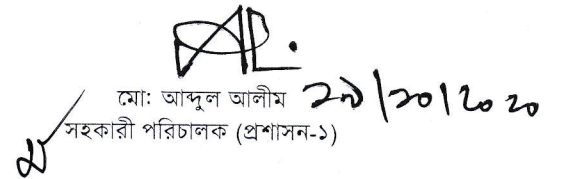 মো: আব্দুল আলীম ২৯/১০/২০২০
সহকারী পরিচালক (প্রশাসন-১)